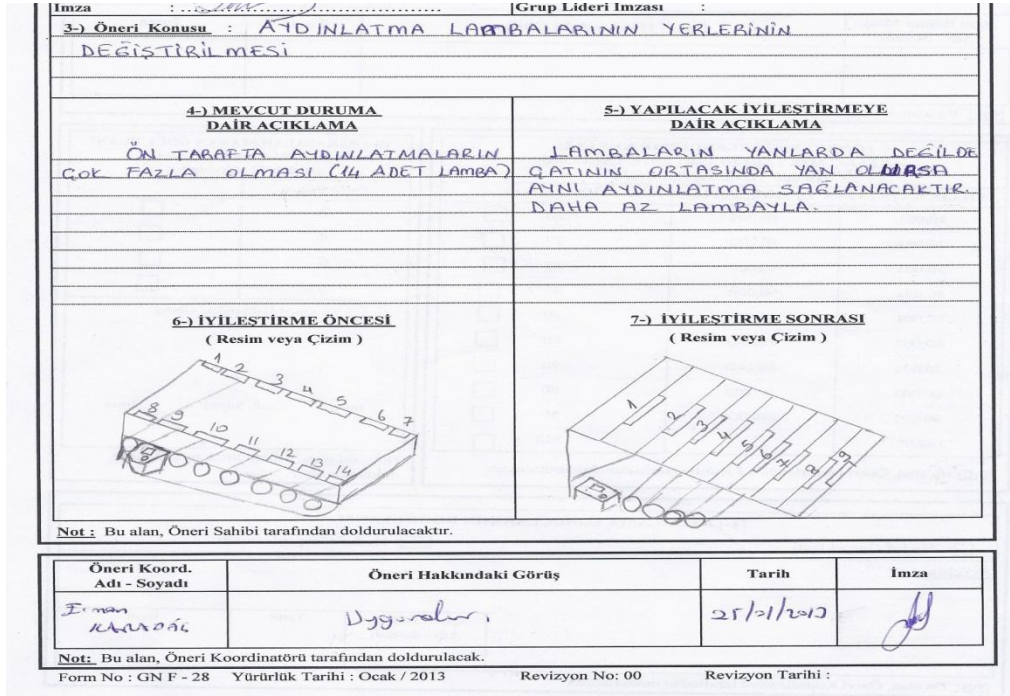 İmza :
Grup Lideri İmzası :
3-) Öneri Konusu : AYDINLATMA LAMBALARININ YERLERİNİN
DEĞİŞTİRİLMESİ
4-) MEVCUT DURUMA
DAİR AÇIKLAMA
ÖN TARAFTA AYDINLATMALARIN
ÇOK FAZLA OLMASI (14 ADET LAMBA)
5-) YAPILACAK İYİLEŞTİRMEYE
DAİR AÇIKLAMA
LAMBALARIN YANLARDA DEĞİLDE
ÇATININ ORTASINDA YAN OLURSA
AYNI AYDINLATMA SAĞLANACAKTIR.
DAHA AZ LAMBAYLA.
6-) İYİLEŞTİRME ÖNCESİ
( Resim veya Çizim )
1 2 3 4 5 6 7
8 9 10 11 12 13 14
7-) İYİLEŞTİRME SONRASI
( Resim veya Çizim )
1 2 3 4 5 6 7 8 9
Not : Bu alan, Öneri Sahibi tarafından doldurulacaktır.
Öneri Koord.
Adı - Soyadı
Öneri Hakkındaki Görüş
Tarih
İmza
KARADAĞ
Uygundur.
25/01/2013
Not: Bu alan, Öneri Koordinatörü tarafından doldurulacak.
Form No : GN F - 28 Yürürlük Tarihi : Ocak / 2013 Revizyon No: 00 Revizyon Tarihi :